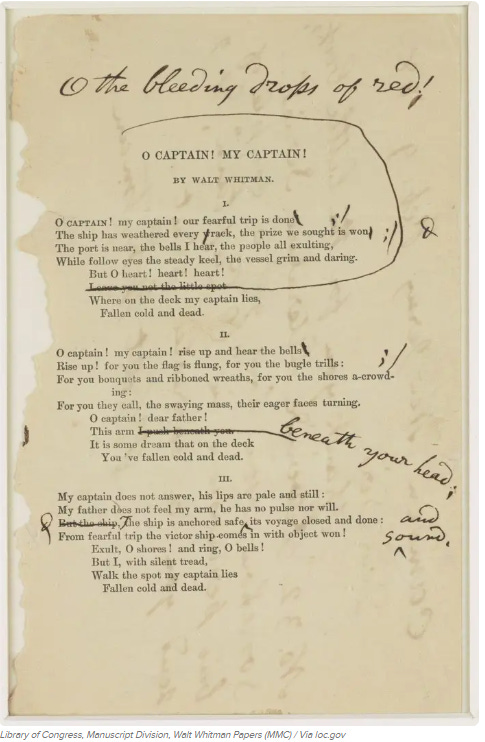 O the bleeding drops of red!
O CAPTAIN! MY CAPTAIN!
BY WALT WHITMAN.
I.
O CAPTAIN! my captain! our fearful trip is done ;/
The ship has weathered every rack, the prize we sought is won ;/
The port is near, the bells I hear, the people all exulting,
While follow eyes the steady keel, the vessel grim and daring.
But O heart! heart! heart!
Leave you not the little spot
Where on the deck my captain lies,
Fallen cold and dead.
II.
O captain! my captain! rise up and hear the bells ;/
Rise up! for you the flag is flung, for you the bugle trills:
For you bouquets and ribboned wreaths, for you the shores a-crowd-
ing:
For you they call, the swaying mass, their eager faces turning.
O captain! dear father!
This arm I push beneath you. beneath your head;
It is some dream that on the deck
You 've fallen cold and dead.
III.
My captain does not answer, his lips are pale and still:
My father does not feel my arm, he has no pulse nor will.
But the ship, the ship is anchored safe, its voyage closed and done: and sound,
From fearful trip the victor ship comes in with object won!
Exult, O shores! and ring, O bells!
But I, with silent tread,
Walk the spot my captain lies
Fallen cold and dead.
Library of Congress, Manuscript Division, Walt Whitman Papers (MMC) / Via loc.gov